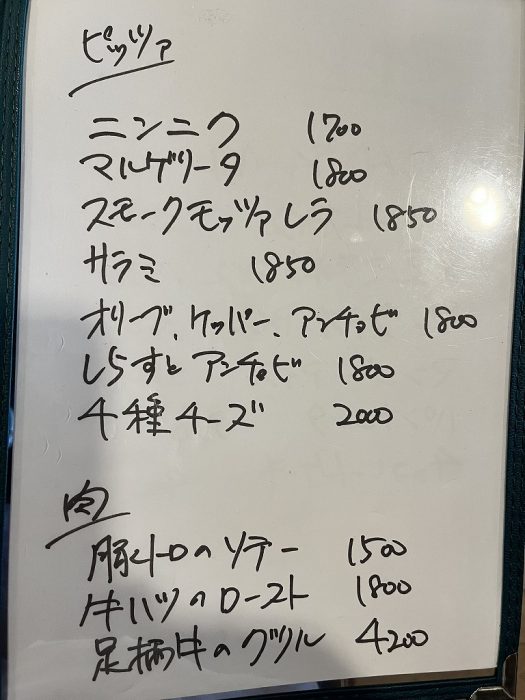 ピッツァ
ニンニク 1700
マルゲリータ 1800
スモークモッツァレラ 1850
サラミ 1850
オリーブ、ケッパー、アンチョビ 1800
しらすとアンチョビ 1800
4種チーズ 2000
肉
豚トロのソテー 1500
牛ハツのロースト 1800
足柄牛のグリル 4200